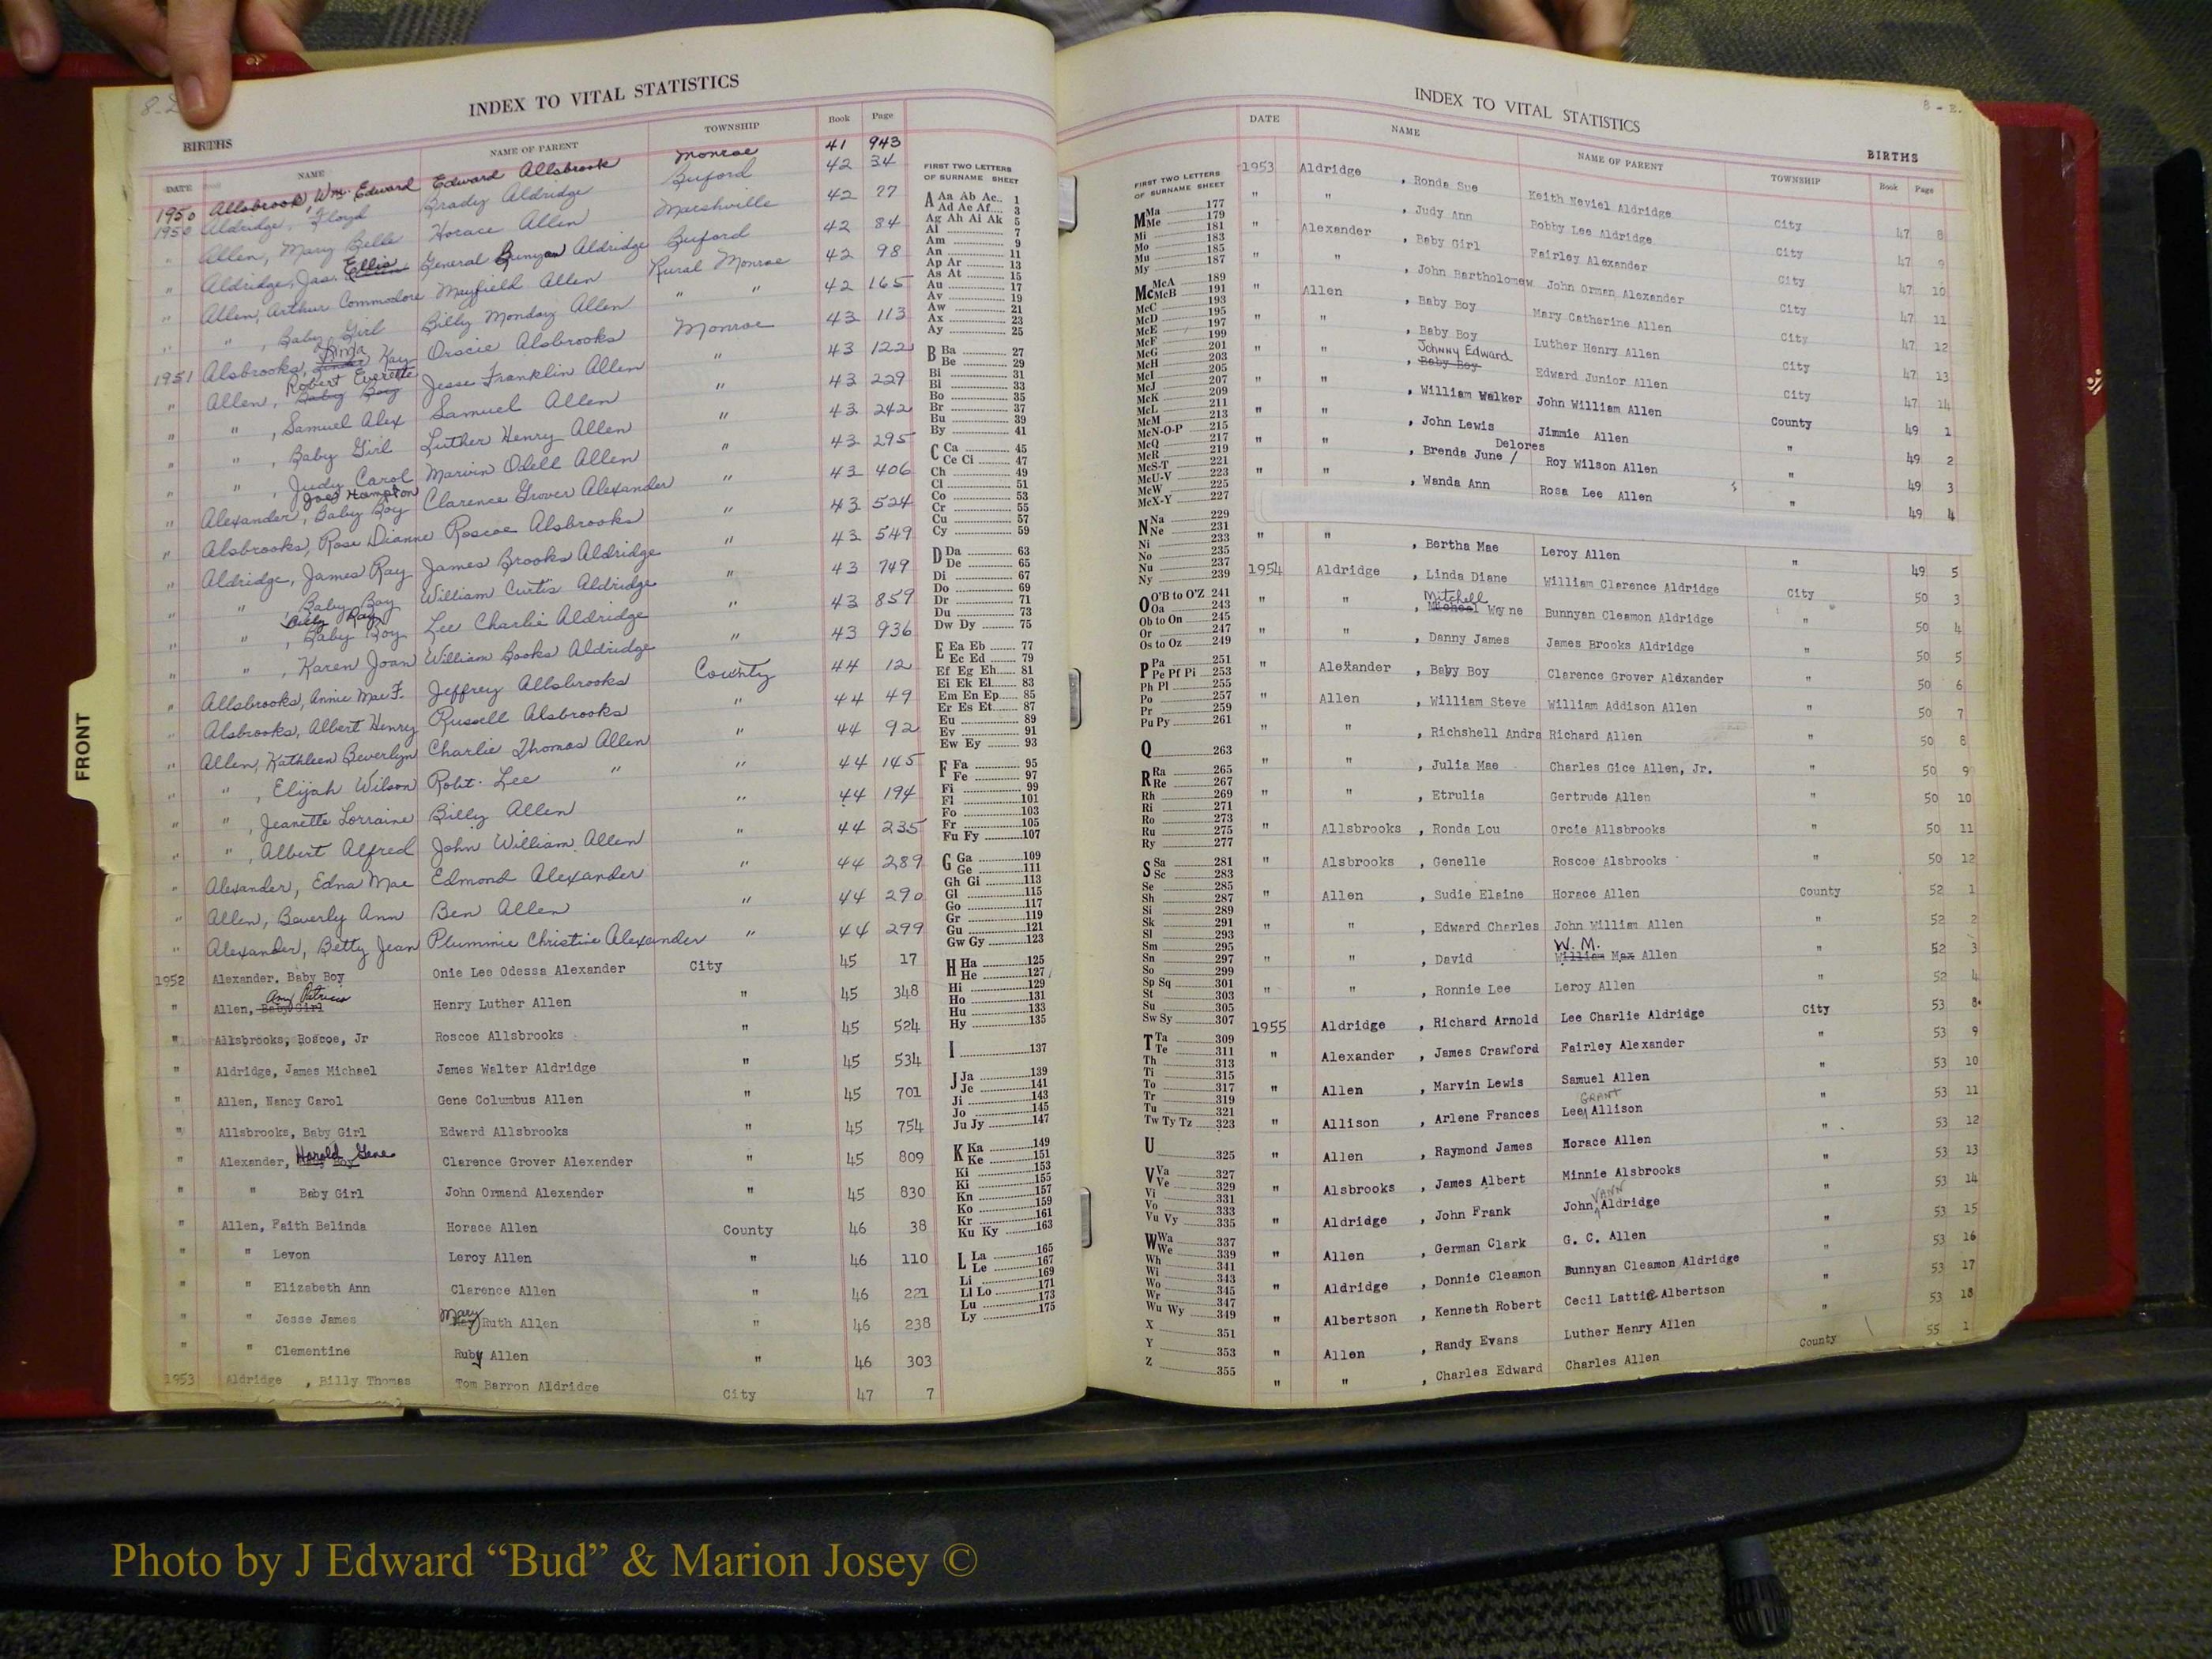 8-
INDEX TO VITAL STATISTICS
BIRTHS
DATE NAME NAME OF PARENT TOWNSHIP Book Page
1950 Allsbrook, Wm. Edward Edward Allsbrook Monroe 41 943
1950 Aldridge, Floyd Brady Aldridge Buford 42 34
" Allen, Mary Belle Horace Allen Marshville 42 77
" Aldridge, Jas. Ellis General Bunyan Aldridge Buford 42 84
" Allen, Arthur Commodore Mayfield Allen Rural Monroe 42 98
" " , Baby Girl Billy Monday Allen " " 42 165
1951 Alsbrooks, Kay Orscie Alsbrooks Monroe 43 113
" Allen, Robert Everette Baby Boy Jesse Franklin Allen " 43 122
" " , Samuel Alex Samuel Allen " 43 229
" " , Baby Girl Luther Henry Allen " 43 242
" " , Judy Carol Marvin Odell Allen " 43 295
" Alexander, Baby Boy Joe Hampton Clarence Grover Alexander " 43 406
" Alsbrooks, Rose Dianne Roscoe Alsbrooks " 43 524
" Aldridge, James Ray James Brooks Aldridge " 43 549
" " , Baby Boy William Curtis Aldridge " 43 749
" " , Billy Ray Baby Boy Lee Charlie Aldridge " 43 859
" " , Karen Joan William Books Aldridge " 43 936
" Allsbrooks, Annie Mae F. Jeffrey Allsbrooks County 44 12
" Alsbrooks, Albert Henry Russell Alsbrooks " 44 49
" Allen, Kathleen Beverlyn Charlie Thomas Allen " 44 92
" " , Elijah Wilson Robt. Lee " " 44 145
" " , Jeanette Lorraine Billy Allen " 44 194
" " , Albert Alfred John William Allen " 44 235
" Alexander, Edna Mae Edmond Alexander " 44 289
" Allen, Beverly Ann Ben Allen " 44 290
" Alexander, Betty Jean Plummie Christine Alexander " 44 299
1952 Alexander, Baby Boy Onie Lee Odessa Alexander City 45 17
" Allen, Baby Girl Amy Patricia Henry Luther Allen " 45 348
" Allsbrooks, Roscoe, Jr Roscoe Allsbrooks " 45 524
" Aldridge, James Michael James Walter Aldridge " 45 534
" Allen, Nancy Carol Gene Columbus Allen " 45 701
" Allsbrooks, Baby Girl Edward Allsbrooks " 45 754
" Alexander, Harold Gene Clarence Grover Alexander " 45 809
" " Baby Girl John Ormand Alexander " 45 830
" Allen, Faith Belinda Horace Allen County 46 38
" " Levon Leroy Allen " 46 110
" " Elizabeth Ann Clarence Allen " 46 221
" " Jesse James Mary Ruth Allen " 46 238
" " Clementine Ruby Allen " 46 303
1953 Aldridge , Billy Thomas Tom Barron Aldridge City 47 7
FRONT
FIRST TWO LETTERS
OF SURNAME SHEET
A Aa Ab Ac.. 1
Ad Ae Af.... 3
Ag Ah Ai Ak 5
Al 7
Am 9
An 11
Ap Ar 13
As At 15
Au 17
Av 19
Aw 21
Ax 23
Ay 25
B Ba 27
Be 29
Bi 31
Bl 33
Bo 35
Br 37
Bu 39
By 41
C Ca 45
Ce Ci 47
Ch 49
Cl 51
Co 53
Cr 55
Cu 57
Cy 59
D Da 63
De 65
Di 67
Do 69
Dr 71
Du 73
Dw Dy 75
E Ea Eb 77
Ec Ed 79
Ef Eg Eh 81
Ei Ek El 83
Em En Ep 85
Er Es Et 87
Eu 89
Ev 91
Ew Ey 93
F Fa 95
Fe 97
Fi 99
Fl 101
Fo 103
Fr 105
Fu Fy 107
G Ga 109
Ge 111
Gh Gi 113
Gl 115
Go 117
Gr 119
Gu 121
Gw Gy 123
H Ha 125
He 127
Hi 129
Ho 131
Hu 133
Hy 135
I 137
J Ja 139
Je 141
Ji 143
Jo 145
Ju Jy 147
K Ka 149
Ke 151
Ki 153
Ki 155
Kn 157
Ko 159
Kr 161
Ku Ky 163
L La 165
Le 167
Li 169
Ll Lo 171
Lu 173
Ly 175
INDEX TO VITAL STATISTICS
8 - E.
BIRTHS
FIRST TWO LETTERS
OF SURNAME SHEET
M Ma 177
Me 179
Mi 181
Mo 183
Mu 185
My 187
Mc McA 189
McB 191
McC 193
McD 195
McE 197
McF 199
McG 201
McH 203
McI 205
McJ 207
McK 209
McL 211
McM 213
McN-O-P 215
McQ 217
McR 219
McS-T 221
McU-V 223
McW 225
McX-Y 227
N Na 229
Ne 231
Ni 233
No 235
Nu 237
Ny 239
O O'B to O'Z 241
Oa 243
Ob to On 245
Or 247
Os to Oz 249
P Pa 251
Pe Pf Pi 253
Ph Pl 255
Po 257
Pr 259
Pu Py 261
Q 263
R Ra 265
Re 267
Rh 269
Ri 271
Ro 273
Ru 275
Ry 277
S Sa 281
Sc 283
Se 285
Sh 287
Si 289
Sk 291
Sl 293
Sm 295
Sn 297
So 299
Sp Sq 301
St 303
Su 305
Sw Sy 307
T Ta 309
Te 311
Th 313
Ti 315
To 317
Tr 319
Tu 321
Tw Ty Tz 323
U 325
V Va 327
Ve 329
Vi 331
Vo 333
Vu Vy 335
W Wa 337
We 339
Wh 341
Wi 343
Wo 345
Wr 347
Wu Wy 349
X 351
Y 353
Z 355
DATE NAME NAME OF PARENT TOWNSHIP Book Page
1953 Aldridge , Ronda Sue Keith Neviel Aldridge City 47 8
" " , Judy Ann Bobby Lee Aldridge City 47 9
" Alexander , Baby Girl Fairley Alexander City 47 10
" " , John Bartholomew John Orman Alexander City 47 11
" Allen , Baby Boy Mary Catherine Allen City 47 12
" " , Baby Boy Luther Henry Allen City 47 13
" " , Johnny Edward Baby Boy Edward Junior Allen City 47 14
" " , William Walker John William Allen County 49 1
" " , John Lewis Jimmie Allen " 49 2
" " , Brenda June / Delores Roy Wilson Allen " 49 3
" " , Wanda Ann Rosa Lee Allen " 49 4
" " , Bertha Mae Leroy Allen " 49 5
1954 Aldridge , Linda Diane William Clarence Aldridge City 50 3
" " , Mitchell Micheal Wayne Bunnyan Cleamon Aldridge " 50 4
" " , Danny James James Brooks Aldridge " 50 5
" Alexander , Baby Boy Clarence Grover Alexander " 50 6
" Allen , William Steve William Addison Allen " 50 7
" " , Richshell Andra Richard Allen " 50 8
" " , Julia Mae Charles Gice Allen, Jr. " 50 9
" " , Etrulia Gertrude Allen " 50 10
" Allsbrooks , Ronda Lou Orcie Allsbrooks " 50 11
" Alsbrooks , Genelle Roscoe Alsbrooks " 50 12
" Allen , Sudie Elaine Horace Allen County 52 1
" " , Edward Charles John William Allen " 52 2
" " , David W. M. William Max Allen " 52 3
" " , Ronnie Lee Leroy Allen " 52 4
1955 Aldridge , Richard Arnold Lee Charlie Aldridge City 53 8
" Alexander , James Crawford Fairley Alexander " 53 9
" Allen , Marvin Lewis Samuel Allen " 53 10
" Allison , Arlene Frances Lee GRANT Allison " 53 11
" Allen , Raymond James Horace Allen " 53 12
" Alsbrooks , James Albert Minnie Alsbrooks " 53 13
" Aldridge , John Frank John VANN Aldridge " 53 14
" Allen , German Clark G. C. Allen " 53 15
" Aldridge , Donnie Cleamon Bunnyan Cleamon Aldridge " 53 16
" Albertson , Kenneth Robert Cecil Lattie Albertson " 53 17
" Allen , Randy Evans Luther Henry Allen " 53 18
" " , Charles Edward Charles Allen County 55 1
Photo by J Edward “Bud” & Marion Josey ©